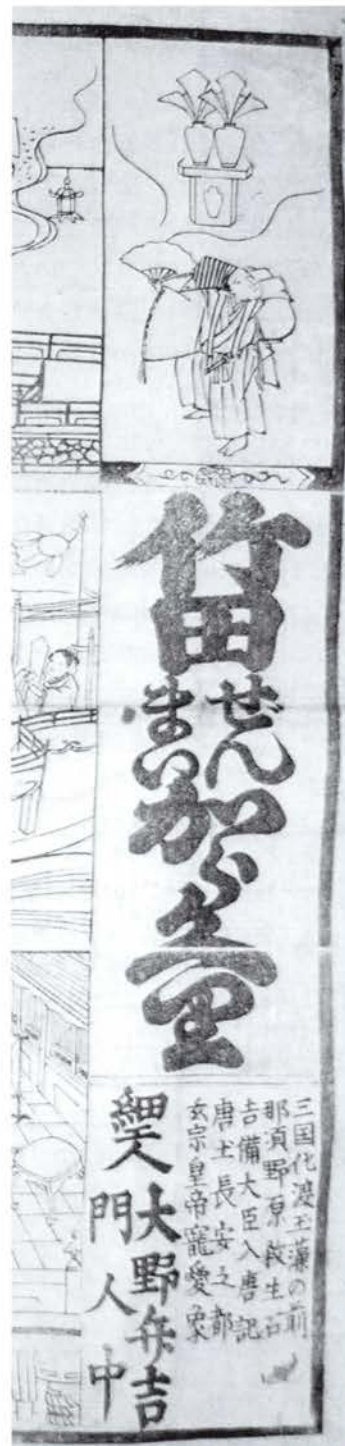 竹田
ぜんまい
からくり
三国伝渡玉藻の前
那須野原殺生石
吉備大臣入唐記
唐土長安之都
玄宗皇帝寵愛象
細工人
大野弁吉
門人中